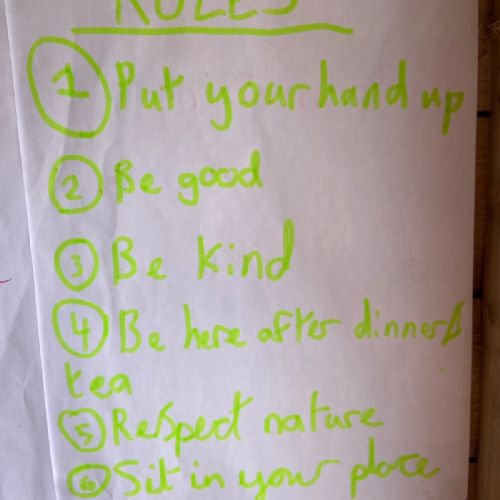 RULES
1 Put your hand up
2 Be good
3 Be kind
4 Be here after dinner &
tea
5 Respect nature
6 Sit in your place